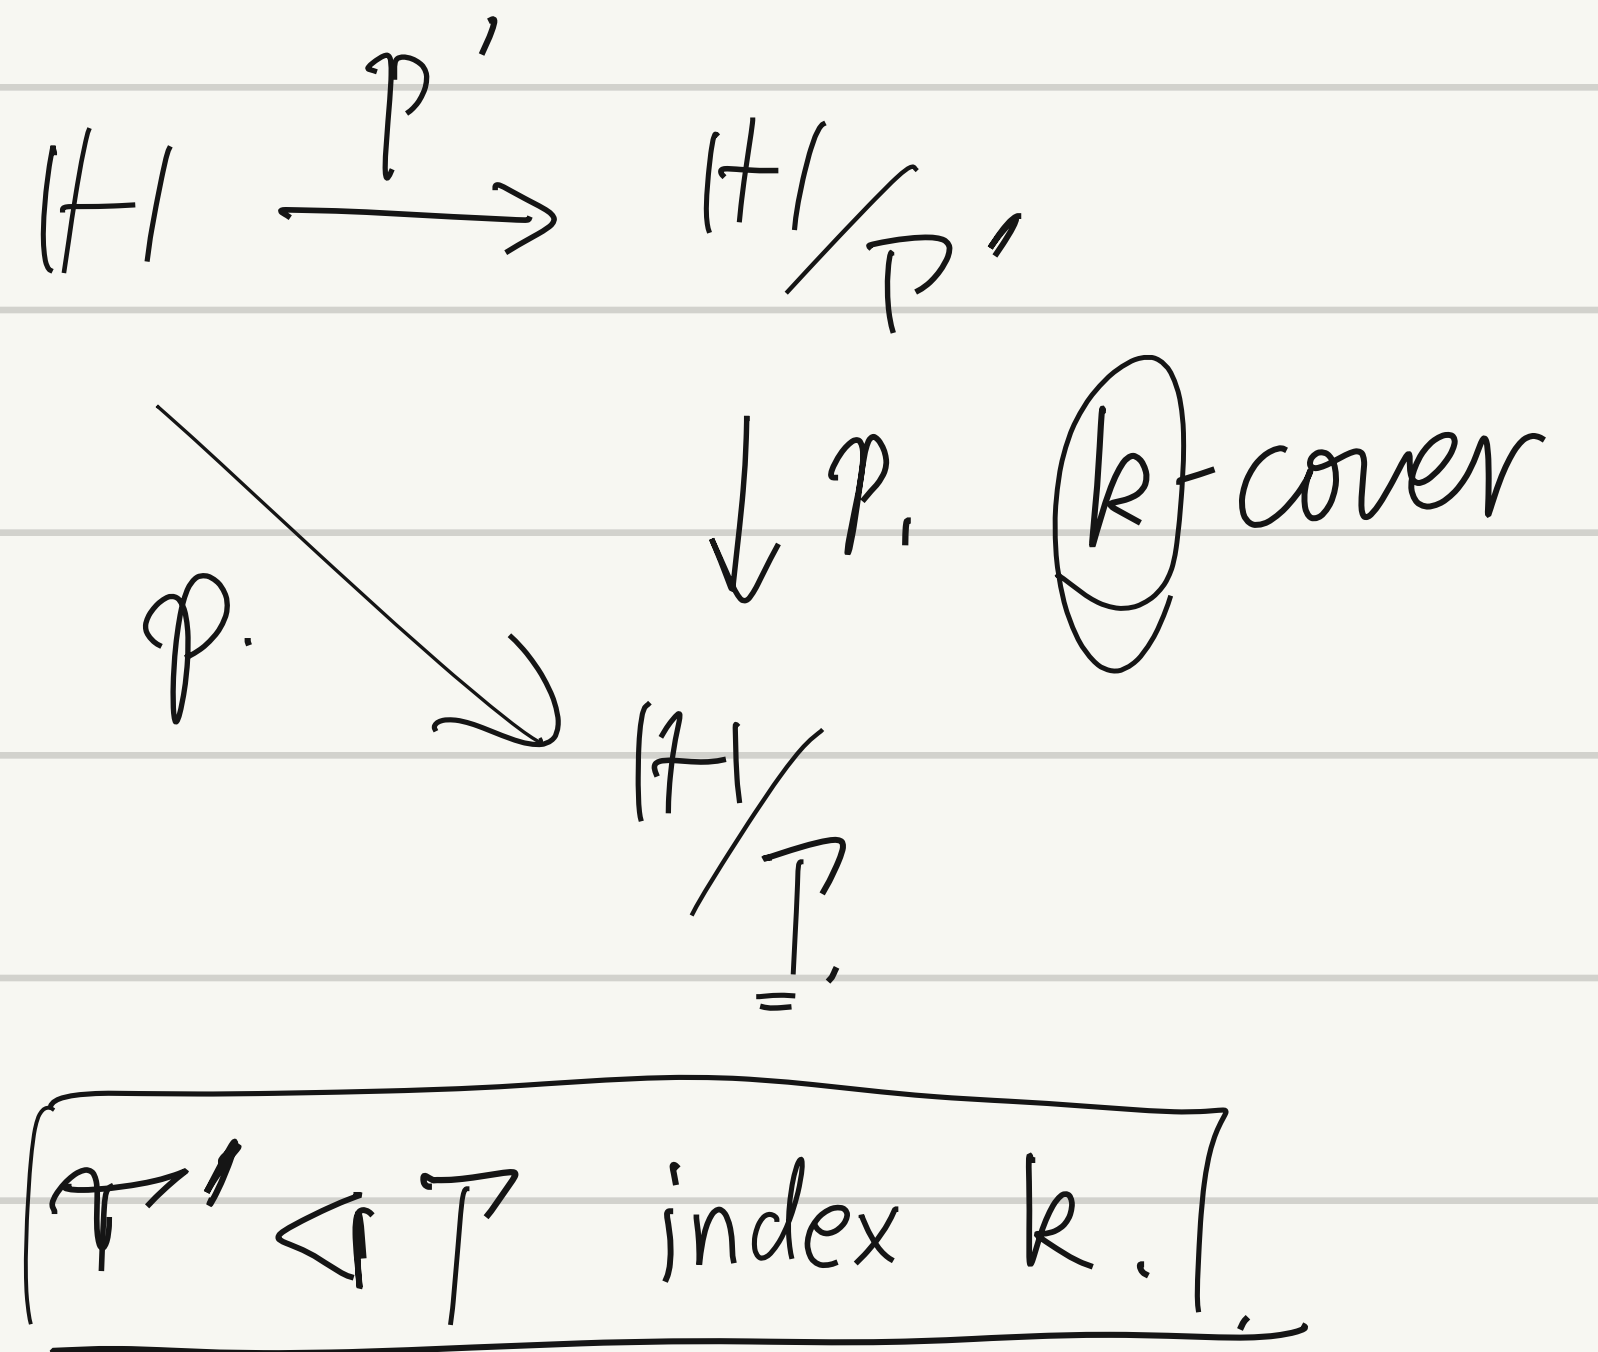 p'
ℍ → ℍ/Γ'
↓ p₁ k-cover
p.
ℍ/Γ.
Γ' ◁ Γ index k.